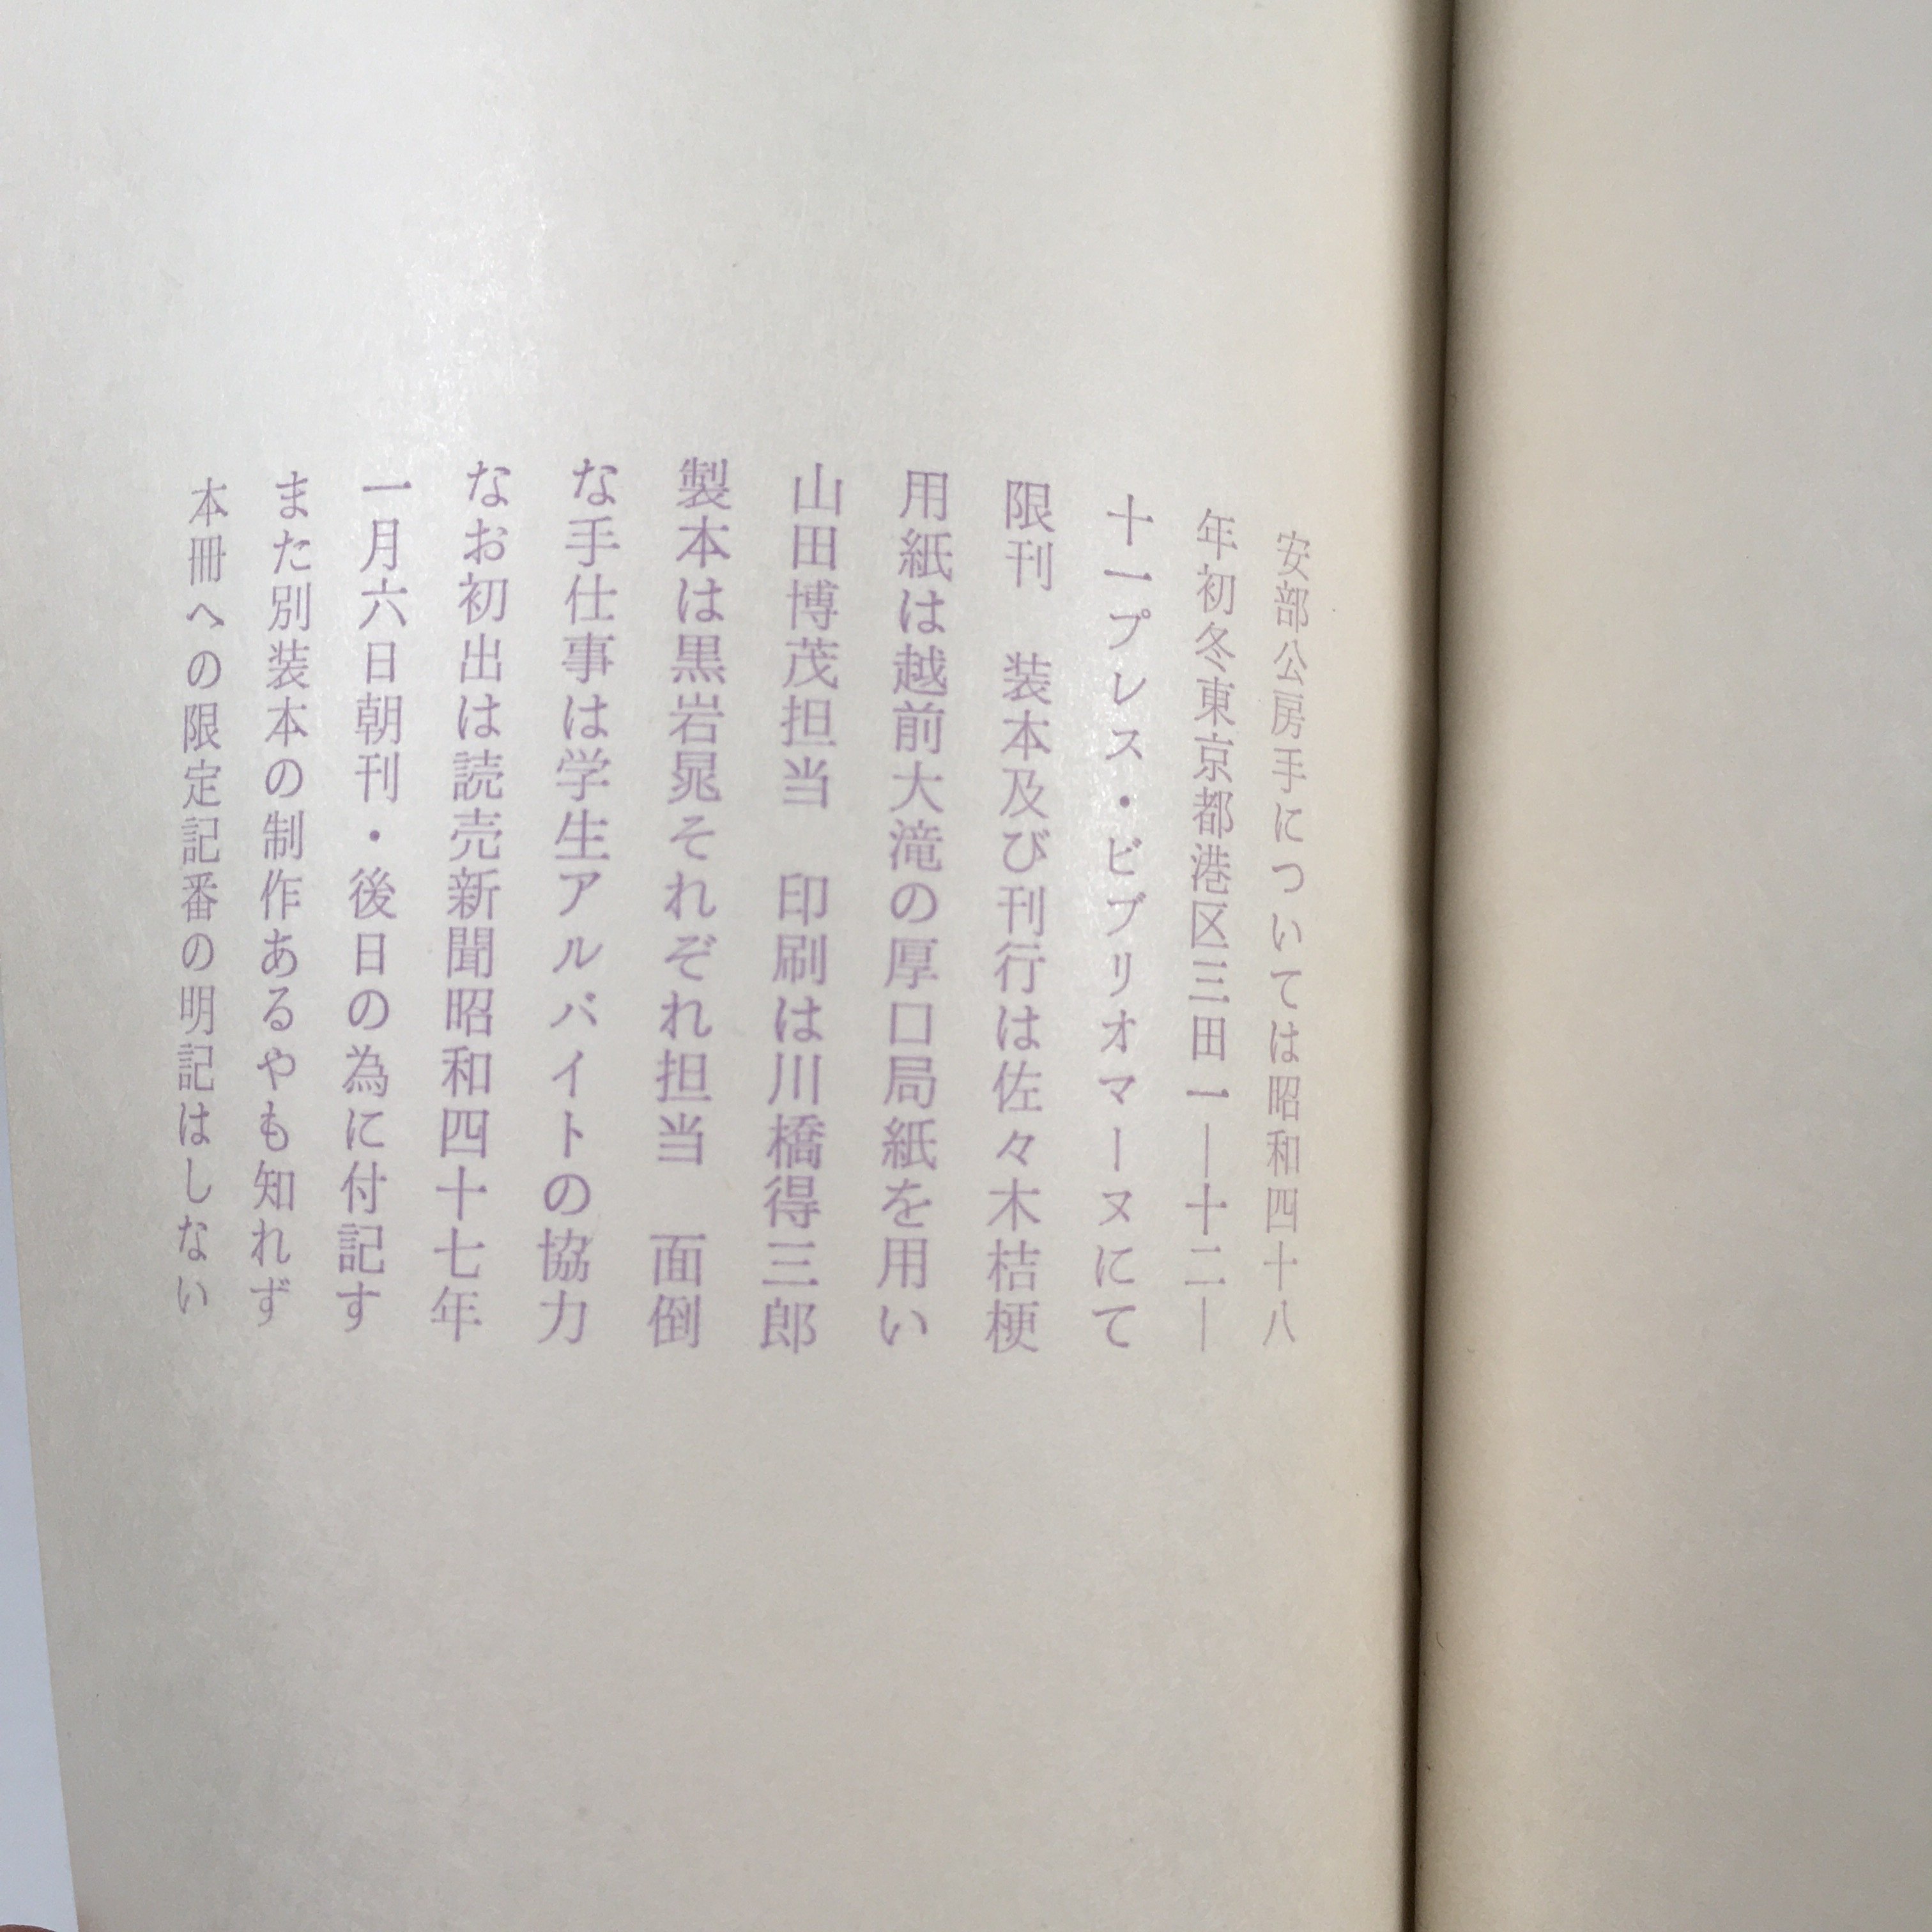 安部公房手については昭和四十八
年初冬東京都港区三田一―十二―
十一プレス・ビブリオマーヌにて
限刊　装本及び刊行は佐々木桔梗
用紙は越前大滝の厚口局紙を用い
山田博茂担当　印刷は川橋得三郎
製本は黒岩晃それぞれ担当　面倒
な手仕事は学生アルバイトの協力
なお初出は読売新聞昭和四十七年
一月六日朝刊・後日の為に付記す
また別装本の制作あるやも知れず
本冊への限定記番の明記はしない